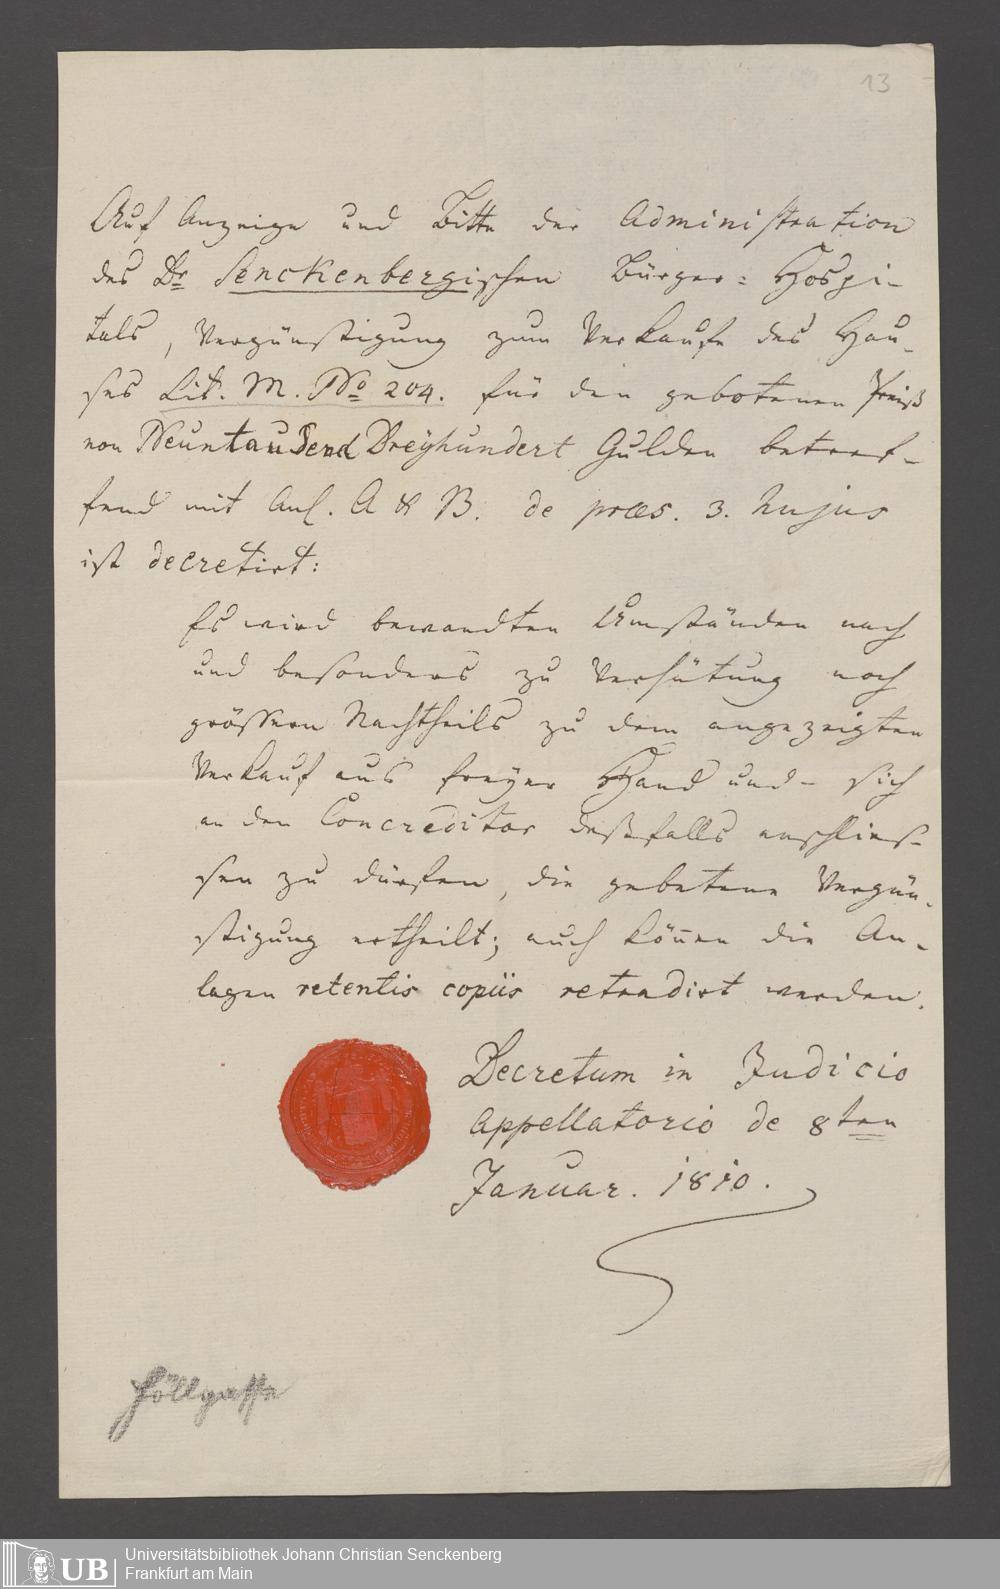 13
Auf Anzeige und Bitte der Administration
des Dr Senckenbergischen Bürger= Hospi-
tals, Vergünstigung zum Verkaufe des Hau-
ses Lit. M. No 204. für den gebotenen Preiß
von Neuntausend Dreyhundert Gulden betref-
fend mit Anl. A & B. de præs. 3. hujus
ist decretirt:
Es wird bewandten Umständen nach
und besonders zu Verhütung noch
grössern Nachtheils zu dem angezeigten
Verkauf aus freyer Hand und - sich
an den Concreditor deßfalls anschlies-
sen zu dürfen, die gebetene Vergün-
stigung ertheilt; auch können die An-
lagen retentis copiis retradirt werden.
Decretum in Judicio
appellatorio de 8ten
Januar. 1810.
Höllgasse
UB
Universitätsbibliothek Johann Christian Senckenberg
Frankfurt am Main